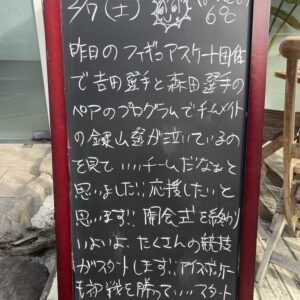 2/7(土)
6℃
昨日のフィギュアスケート団体
で吉田選手と森田選手の
ペアのプログラムでチームメイト
の鍵山 が泣いているの
を見ていいチームだなぁと
思いました!!応援したいと
思います!!開会式を終わり
いよいよ、たくさんの競技
がスタートします!!アイスホッケー
も初戦を勝っていいスタート